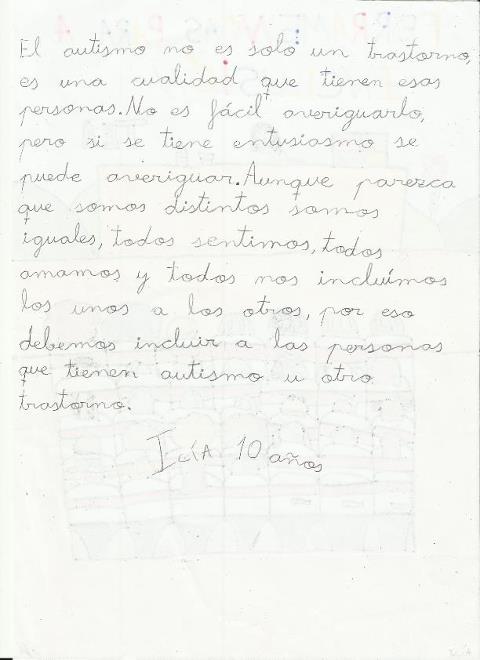 El autismo no es solo un trastorno,
es una cualidad que tienen esas
personas. No es fácil averiguarlo,
pero si se tiene entusiasmo se
puede averiguar. Aunque parezca
que somos distintos somos
iguales, todos sentimos, todos
amamos y todos nos incluímos
los unos a los otros, por eso
debemos incluir a las personas
que tienen autismo u otro
trastorno.
IcíA 10 años